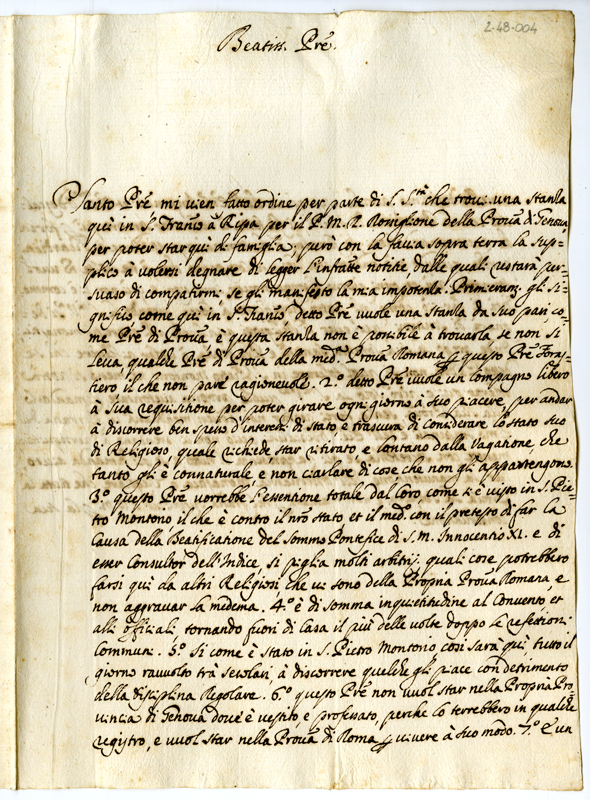 2-48-004
Beatiss. Prẽ.
Santo Prẽ mi vien fatto ordine per parte di S. S.tà che trovi una stanza
qui in S. Franc.o a Ripa per il P. M. R. Ronsiglione della Provã di Genova
per poter star qui di famiglia; però con la faccia sopra terra la sup=
plico à volersi degnare di legger l'infratte notitie, dalle quali restarà per=
suaso di compatirmi, se gli manifesto la mia impotenza. Primieram. gli si=
gnifico come qui in S. Franc.o detto Prẽ vuole una stanza da suo pari co=
me Prẽ di Provã, è questa stanza non è possibile à trovarla, se non si
Leva, qualche Prẽ di Provã della med.a Provã Romana p questo Prẽ Foras=
tiero il che non pare ragionevole. 2.o detto Prẽ vuole un compagno libero
à sua requisitione per poter girare ogni giorno à suo piacere, per andar
à discorrere ben spesso d'interessi di stato, e trascura di considerare lo stato suo
di Religioso, quale richiede star ritirato, e lontano dalla Vagatione che
tanto gli è connaturale, e non ciarlare di cose che non gli appartengono.
3.o questo Prẽ vorrebbe l'essentione totale dal Coro come s'è visto in S. Pie=
tro Montorio, il che è contro il nrõ stato, et il med.o con il pretesto di far la
Causa della Beatificatione del Sommo Pontefice di S. M. Innocentio XI. e di
esser Consultor dell'Indice, si piglia molti arbitrij, quali cose potrebbero
farsi qui da altri Religiosi, che vi sono della Propria Provã Romana, e
non aggravar la medema. 4.o è di somma inquietitudine al Convento, et
alli Offitiali, tornando fuori di Casa il più delle volte doppo le refettioni
Communi. 5.o Si come è stato in S. Pietro Montorio così sarà quì, tutto il
giorno ravvolto trà secolari, à discorrere quelche gli piace con detrimento
della disciplina Regolare. 6.o questo Prẽ non vuol star nella Propria Pro=
vincia di Genova dove è vestito, e professato, perche lo terrebbero in qualche
registro, e vuol star nella Provã di Roma p vivere à suo modo. 7.o È un